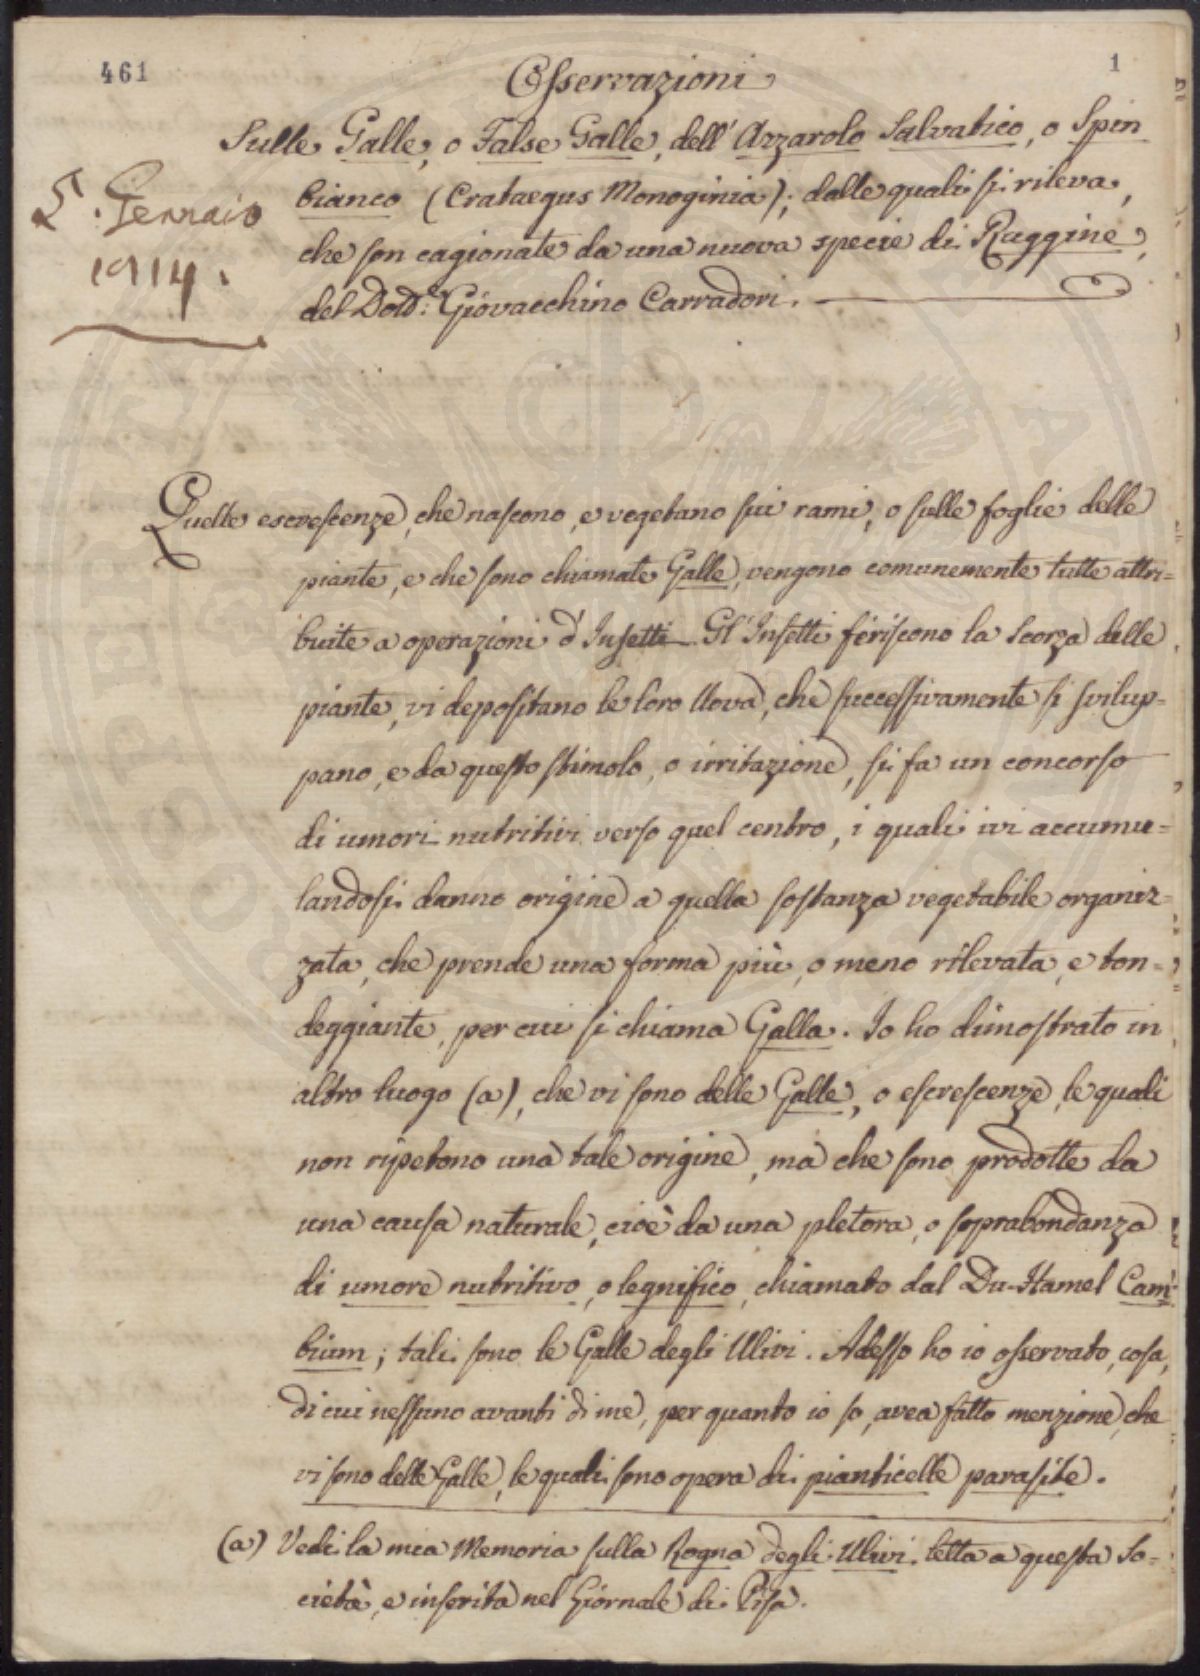 461
1
Osservazioni
Sulle Galle, o False Galle, dell' Azzarolo Salvatico, o Spin
bianco (Crataegus Monoginia); dalle quali si rileva,
che son cagionate da una nuova specie di Ruggine,
del Dott: Giovacchino Carradori.
5. Gennaio
1914.
Quelle escrescenze, che nascono, e vegetano sui rami, o sulle foglie delle
piante, e che sono chiamate Galle, vengono comunemente tutte attri=
buite a operazioni d'Insetti. Gl'Insetti feriscono la Scorza delle
piante, vi depositano le loro Uova, che successivamente si svilup=
pano, e da questo stimolo, o irritazione, si fa un concorso
di umori nutritivi verso quel centro, i quali ivi accumu=
landosi danno origine a quella sostanza vegetabile organiz=
zata, che prende una forma più, o meno rilevata, e ton=
deggiante, per cui si chiama Galla. Io ho dimostrato in
altro luogo (a), che vi sono delle Galle, o escrescenze, le quali
non ripetono una tale origine, ma che sono prodotte da
una causa naturale, cioè da una pletora, o soprabondanza
di umore nutritivo, o legnifico, chiamato dal Du-Hamel Cam=
bium; tali sono le Galle degli Ulivi. Adesso ho io osservato, cosa,
di cui nessuno avanti di me, per quanto io so, avea fatto menzione, che
vi sono delle Galle, le quali sono opera di pianticelle parasite.
(a) Vedi la mia Memoria sulla Rogna degli Ulivi letta a questa So=
cietà, e inserita nel Giornale di Pisa.